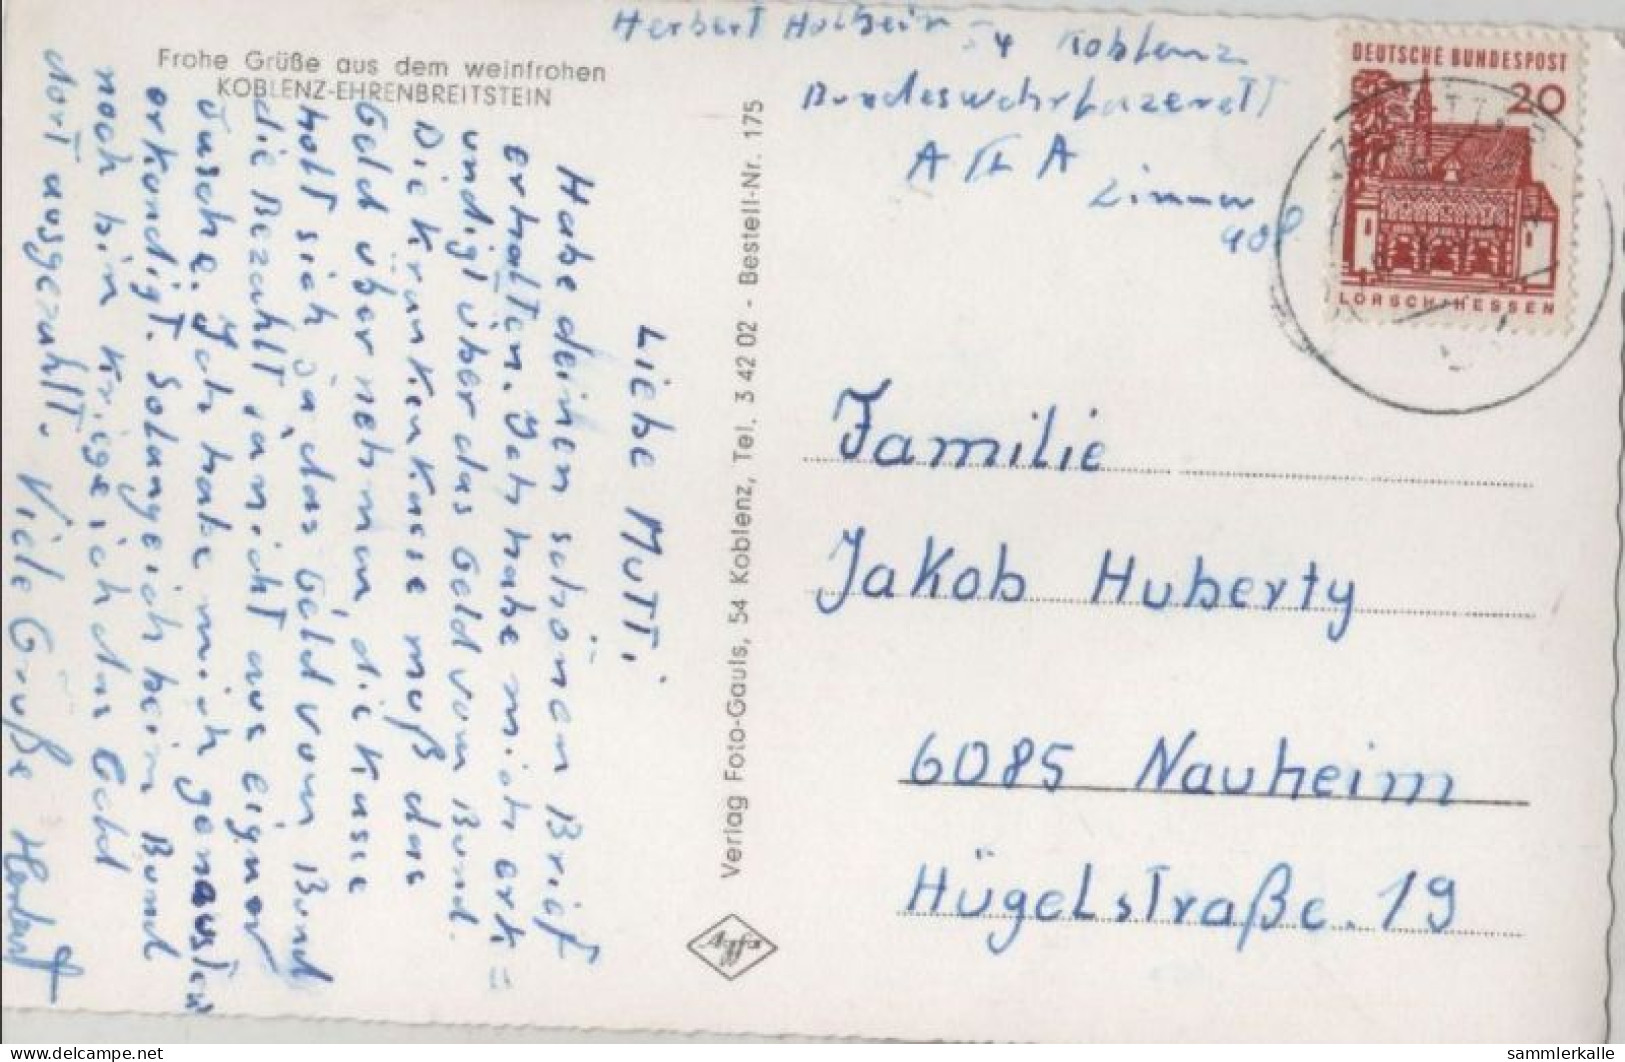 Frohe Grüße aus dem weinfrohen
KOBLENZ-EHRENBREITSTEIN
Liebe Mutti
Habe deinen schönen Brief
erhalten. Ich habe mich erk=
undigt über das Geld vom Bund.
Die Krankenkasse muß das
Geld übernehmen, die Kasse
holt sich ja das Geld vom Bund
die Bezahlt ja nicht aus eigner
Tasche. Ich habe mich genausten
erkundigt. Solang ich beim Bund
noch bin kriege ich das Geld
dort ausgezahlt. Viele Grüße Herbert
Verlag Foto-Gauls, 54 Koblenz, Tel. 3 42 02 - Bestell-Nr. 175
Agfa
Herbert
54 Koblenz
Bundeswehrlazerett
Zimmer
408
DEUTSCHE BUNDESPOST
20
LORSCH/HESSEN
Familie
Jakob Huberty
6085 Nauheim
Hügelstraße. 19
www.delcampe.net
sammlerkalle